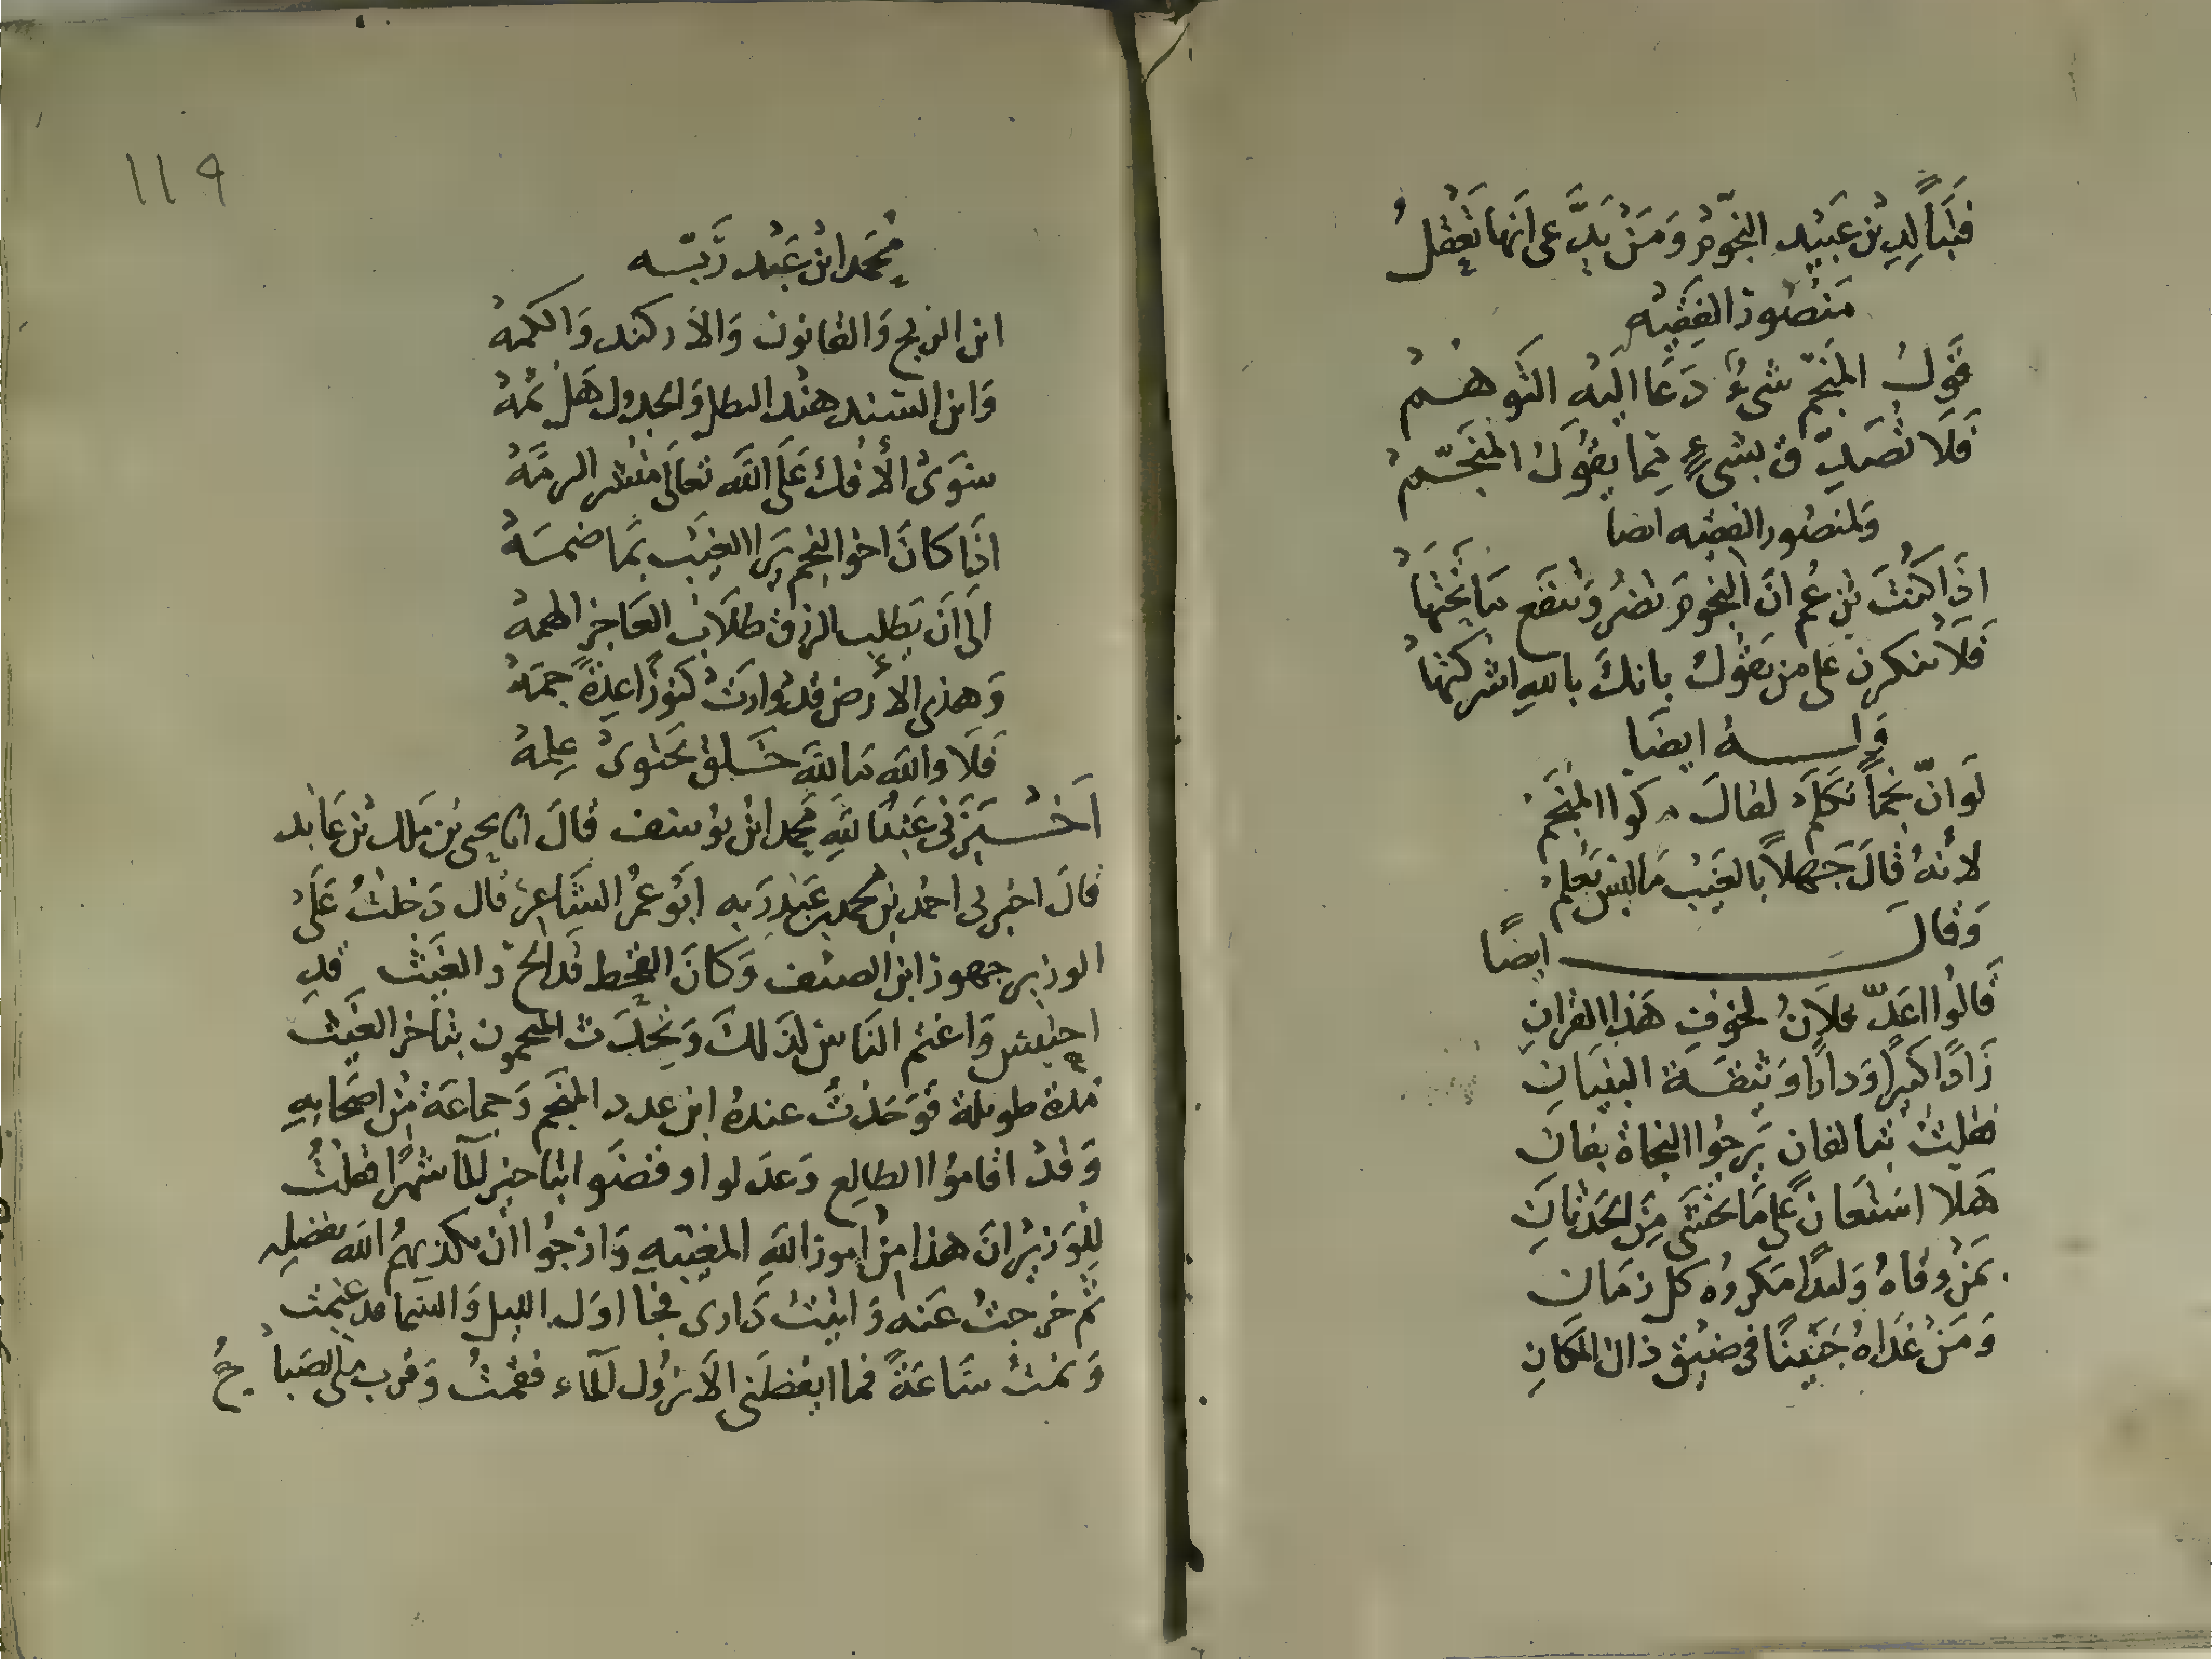 فتبا لدين عبيد النجوم ومن يدعى انها تعقل
منصور الفقيه
قول المنجم شىء دعا اليه التوهم
فلا تصدق بشىء مما يقول المنجم
ولمنصور الفقيه ايضا
اذا كنت تزعم ان النجوم تضر وتنفع من تحتها
فلا تنكرن على من يقول بانك بالله اشركتها
وله ايضا
لو ان نجما تكلم لقال المنجم
لانه قال جهلا بالغيب ما ليس يعلم
وقال ايضا
قالوا اعد فلان لخوف هذا القران
زادا كبيرا ودارا وثيقة البنيان
فقلت تبا لفان يرجوا النجاة بفان
هلا استعان على ما يخشى من الحدثان
بمن وقاه وليدا مكروه كل زمان
ومن غداه جنينا فى ضيق ذاك المكان
١١٩
محمد ابن عبد ربه
اين الزيج والقانون والاركند والكمه
واين السند هند البطل والجدول هل ثمه
سوى الافك على الله تعالى منشر الرمه
اذا كان اخو النجم يرا الغيب بما ضمه
الى ان يطلب الرزق طلاب العاجز الهمه
وهذى الارض قد وارت كنوزا عدة جمه
فلا والله ما لله خلق يحتوى علمه
اخبرنى عبد الله محمد ابن يوسف قال انا يحيى بن مالك بن عابد
قال اخبرنى احمد بن محمد بن عبد ربه ابو عمر الشاعر قال دخلت على
الوزير جهور ابن الضيف وكان القحط قد الح والغيث قد
احتبس واغتم الناس لذلك وتحدث المنجمون بتاخر الغيث
مدة طويلة فوجدت عنده ابن المنجم وجماعة من اصحابه
وقد اقاموا الطالع وعدلوا وقضوا بتاخير الما شهرا فقلت
للوزير ان هذا من امور الله المغيبه وارجوا ان يكذبهم الله بفضله
ثم خرجت عنه واتيت دارى فجا اول الليل والسما قد غيمت
ونمت ساعة فما ايقضنى الا نزول الماء فقمت وقرب الصباح